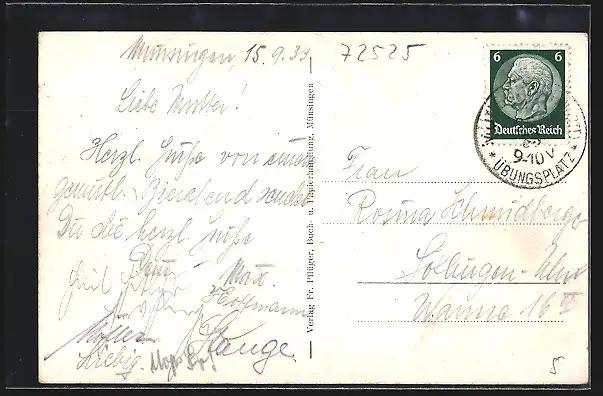 Münsingen, 15.9.35
72525
Liebe Mutter!
Herzl. Grüße von einem
gemütl. Bierabend sendet
Dir die herzl. Grüße
Dein Max.
Hoffmann
Müller
Stange.
Liebig.
Verlag Fr. Pfliger, Buch- u. Papierhandlung, Münsingen
6 6
Deutsches Reich
9-10 V
* ÜBUNGSPLATZ *
Frau
Rosina Schmidberger
Söflingen-Ulm
16 II
5